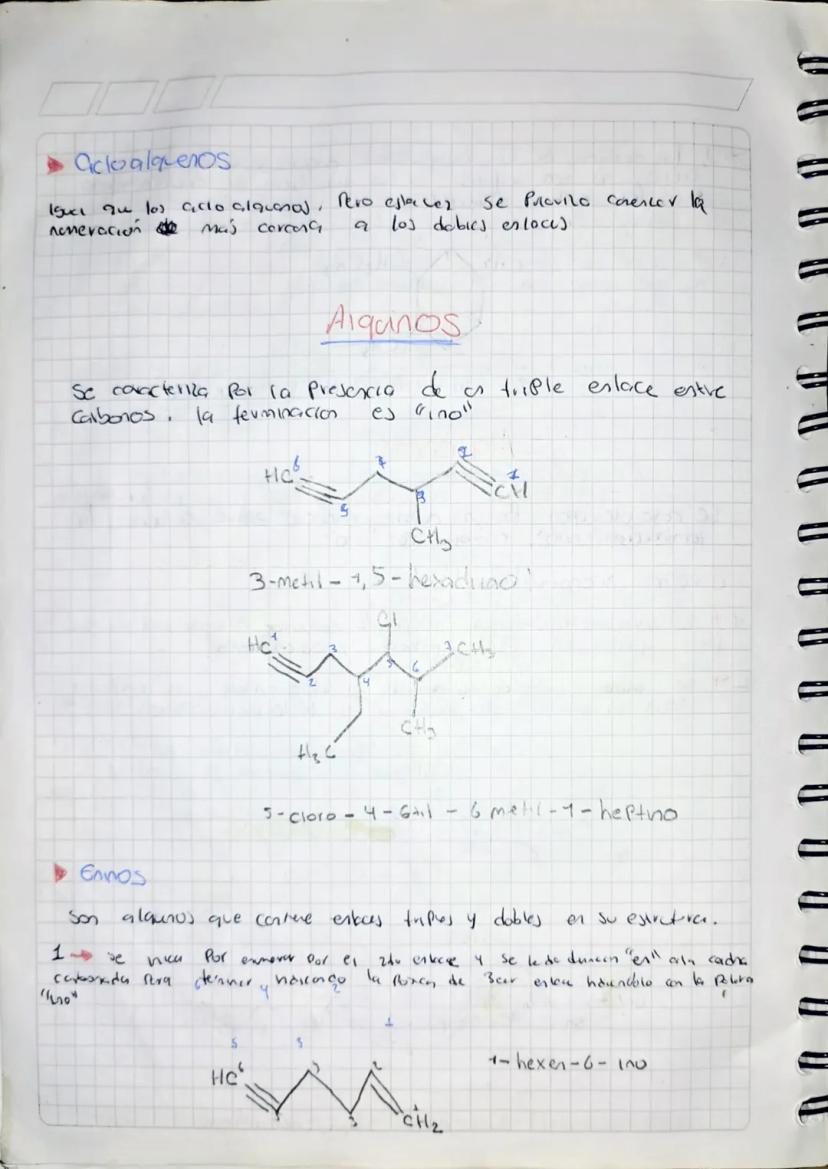 Cicloalquenos
Igual que los ciclo alquenos, Pero esta vez se Prioriza comenzar la
numeración de mas cercana a los dobles enlaces
Alquinos
Se caracteriza Por la Presencia de un triple enlace entre
Carbonos. la terminacion es "ino"
HC 6 5 4 3 2 1 CH
CH3
3-metil-1,5-hexadiino
Cl
HC 1 2 3 4 5 6 7 CH3
CH3
H3C
5-cloro-4-Etil-6 metil-1-heptino
Eninos
Son alquinos que contiene enlaces triples y dobles en su estructura.
1 → se Por enumerar Por el 2do enlace y se le da "en" a la cadena
carbonada Para y la de 3cer enlace con la
"ino"
1
5 3
HC 6 3 2
3 1 CH2
1-hexen-6-ino